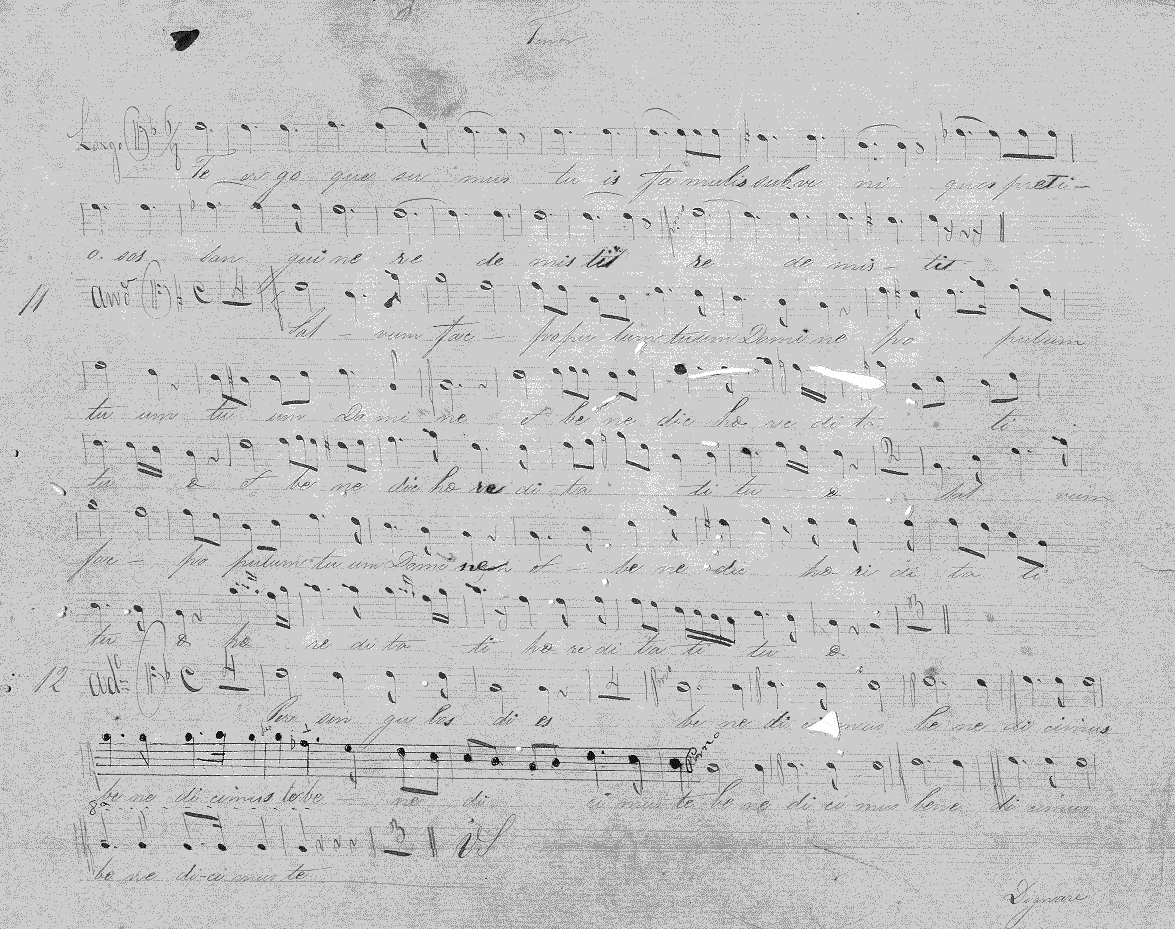 Tenor
Largo
Te er go quæ su mus tu is fa mulis subve ni quos preti-
o. sos san gui ne re de mis tis re de mis - tis
11 And.º C 4
Sal vum fac - popu lum tuum Domi ne po pulum
tu um tu um Do mi ne et be ne dic he re di ta ti
2
tu æ et be ne dic he re di ta ti tu æ Sal vum
fac - po pulum tu um Domi ne et - be ne dic he re di ta ti
3
tu æ he re di ta ti he re di ta ti tu æ
12 ad.º C 4 4
Per sin gu los di es be ne di cimus be ne di cimus
be ne di cimus te be - ne di ci mus te be ne di ci mus bene di cimus
8ª
3
be ne di-ci mus te
Dignare